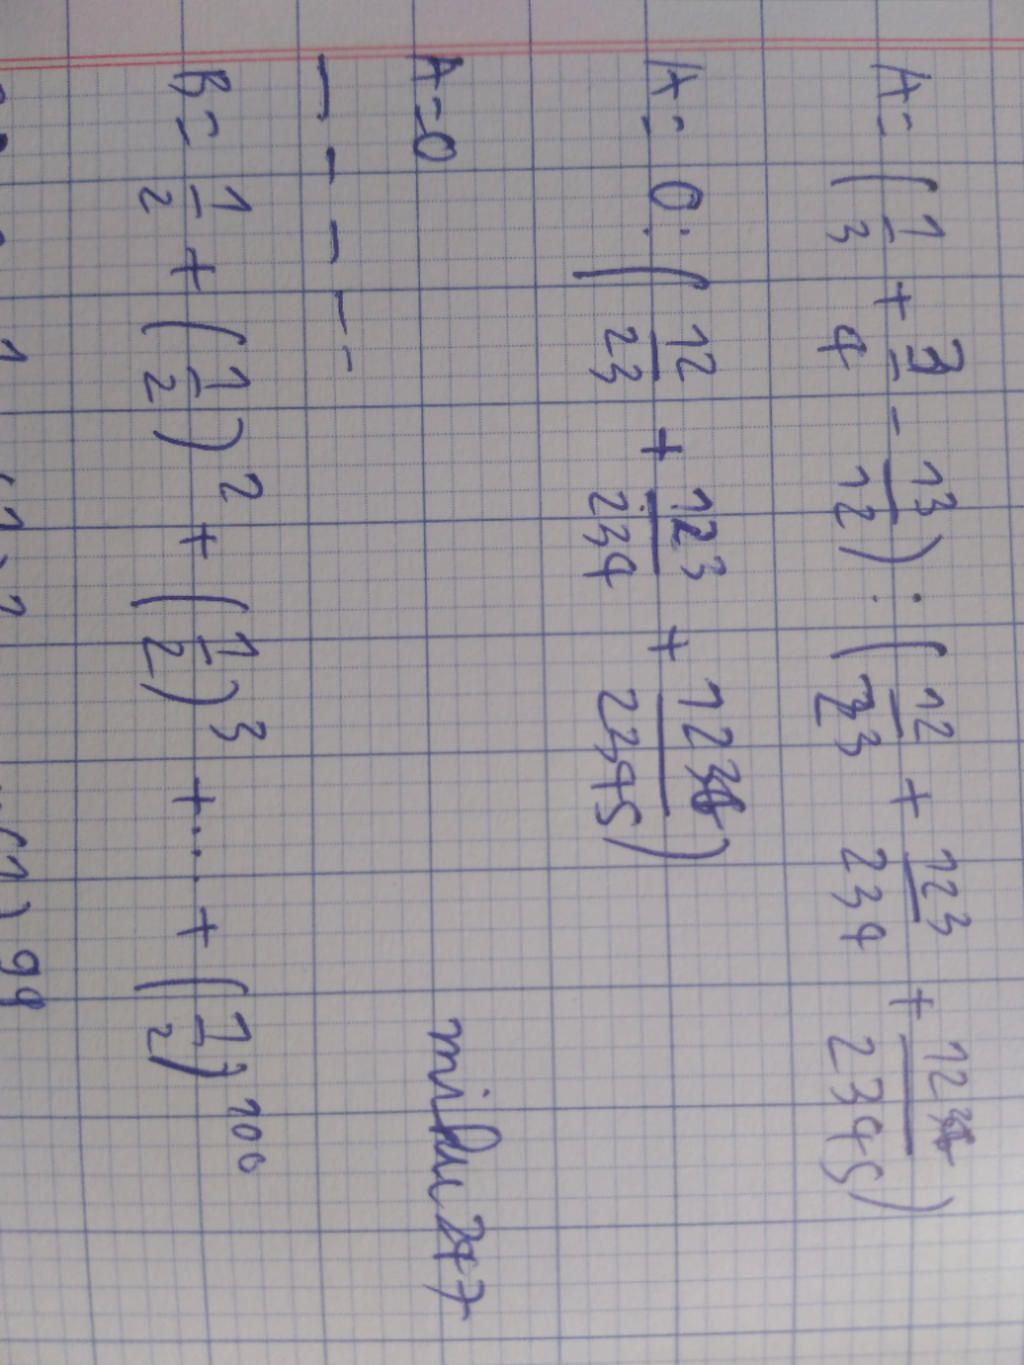 A = (1/3 + 3/4 - 13/12) : (12/23 + 123/234 + 1234/2345)
A = 0 : (12/23 + 123/234 + 1234/2345)
A = 0
B = 1/2 + (1/2)² + (1/2)³ + ... + (1/2)¹⁰⁰